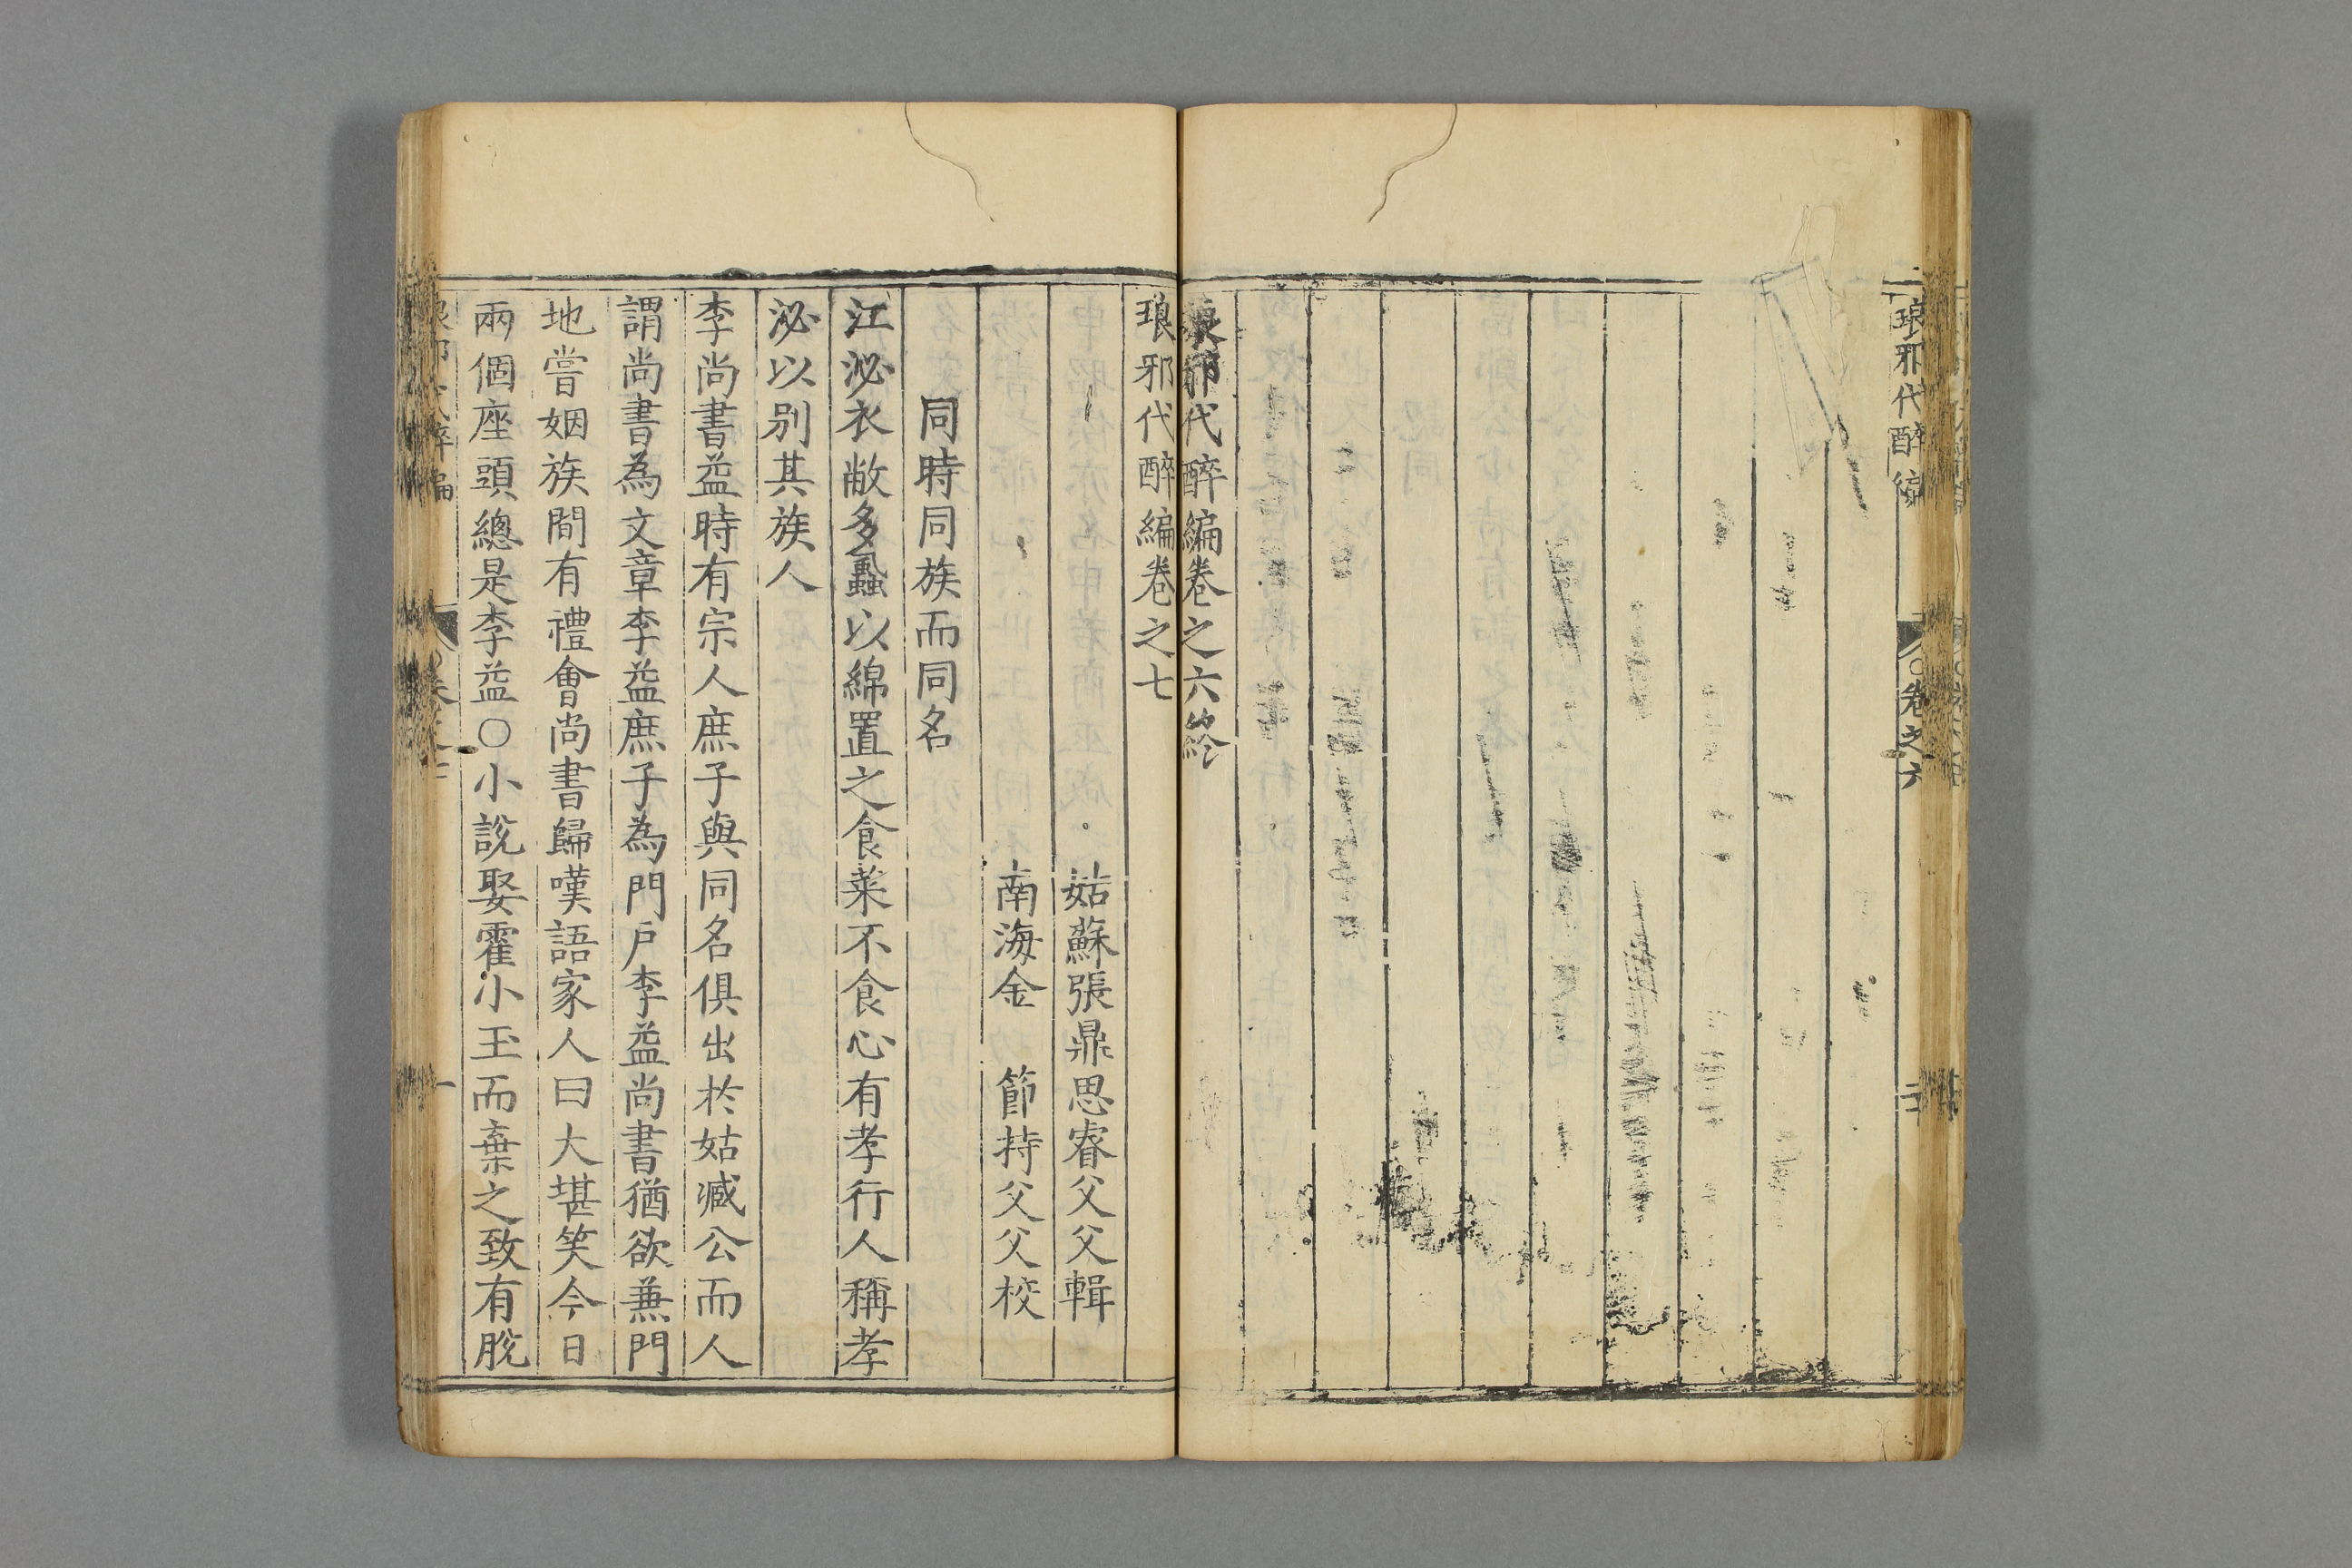 琅邪代醉編
卷之六
琅邪代醉編卷之六終
琅邪代醉編卷之七
姑蘇張鼎思睿父父輯
南海金　節持父父校
同時同族而同名
江泌衣敝多蝨以綿置之食菜不食心有孝行人稱孝
泌以別其族人
李尚書益時有宗人庶子與同名俱出於姑臧公而人
謂尚書為文章李益庶子為門戶李益尚書猶欲兼門
地嘗姻族間有禮會尚書歸嘆語家人曰大堪笑今日
兩個座頭總是李益○小說娶霍小玉而棄之致有脫